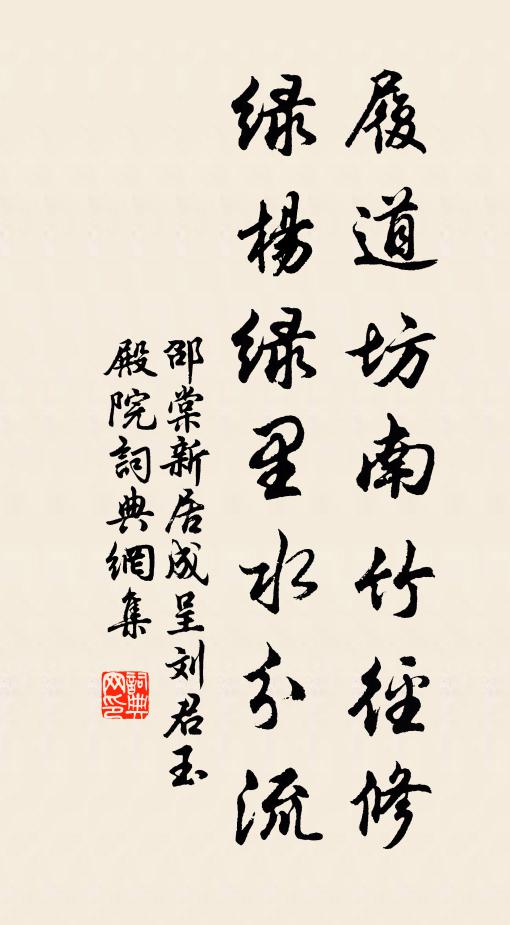 履道坊南竹径修
绿杨绿里水分流
邵棠新居成呈刘君玉
殿院詞典網集
詞典网印